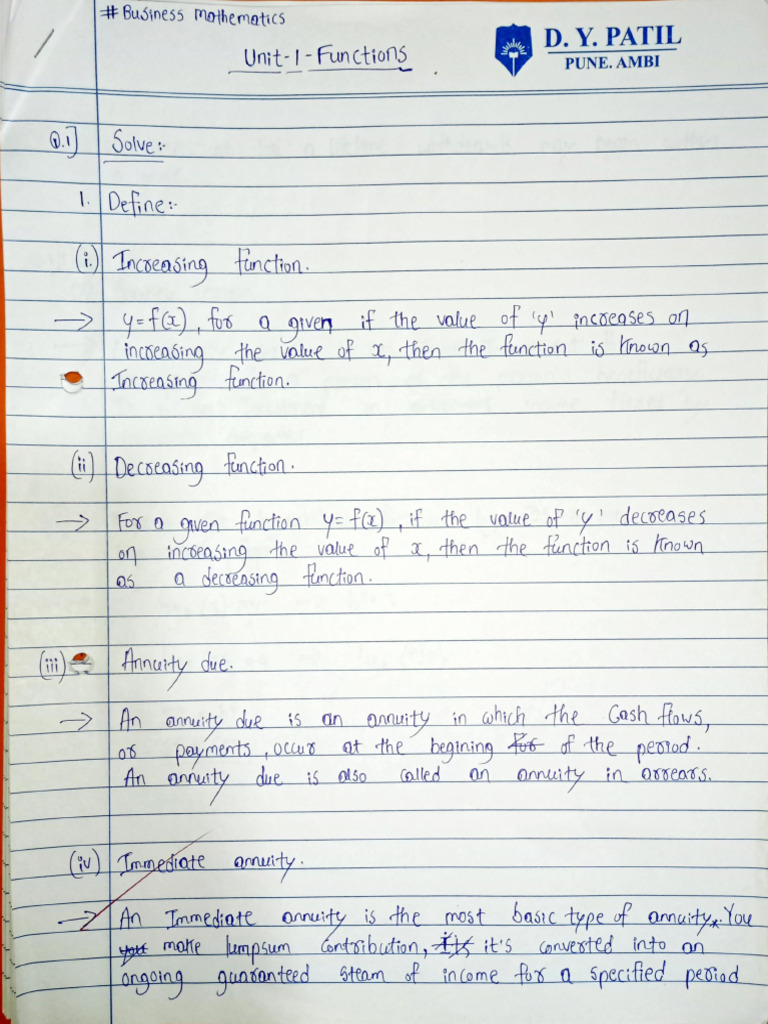 # Business mathematics
Unit-1-Functions
D. Y. PATIL
PUNE. AMBI
Q.1] Solve:-
1. Define:-
(i.) Increasing function.
→ y=f(x), for a given if the value of 'y' increases on
increasing the value of x, then the function is known as
Increasing function.
(ii) Decreasing function.
→ For a given function y=f(x), if the value of 'y' decreases
on increasing the value of x, then the function is known
as a decreasing function.
(iii) Annuity due.
→ An annuity due is an annuity in which the Cash flows,
or payments, occur at the begining for of the period.
An annuity due is also called an annuity in arrears.
(iv) Immediate annuity.
→ An Immediate annuity is the most basic type of annuity. You
make lumpsum contribution, it's converted into an
ongoing guaranteed steam of income for a specified period